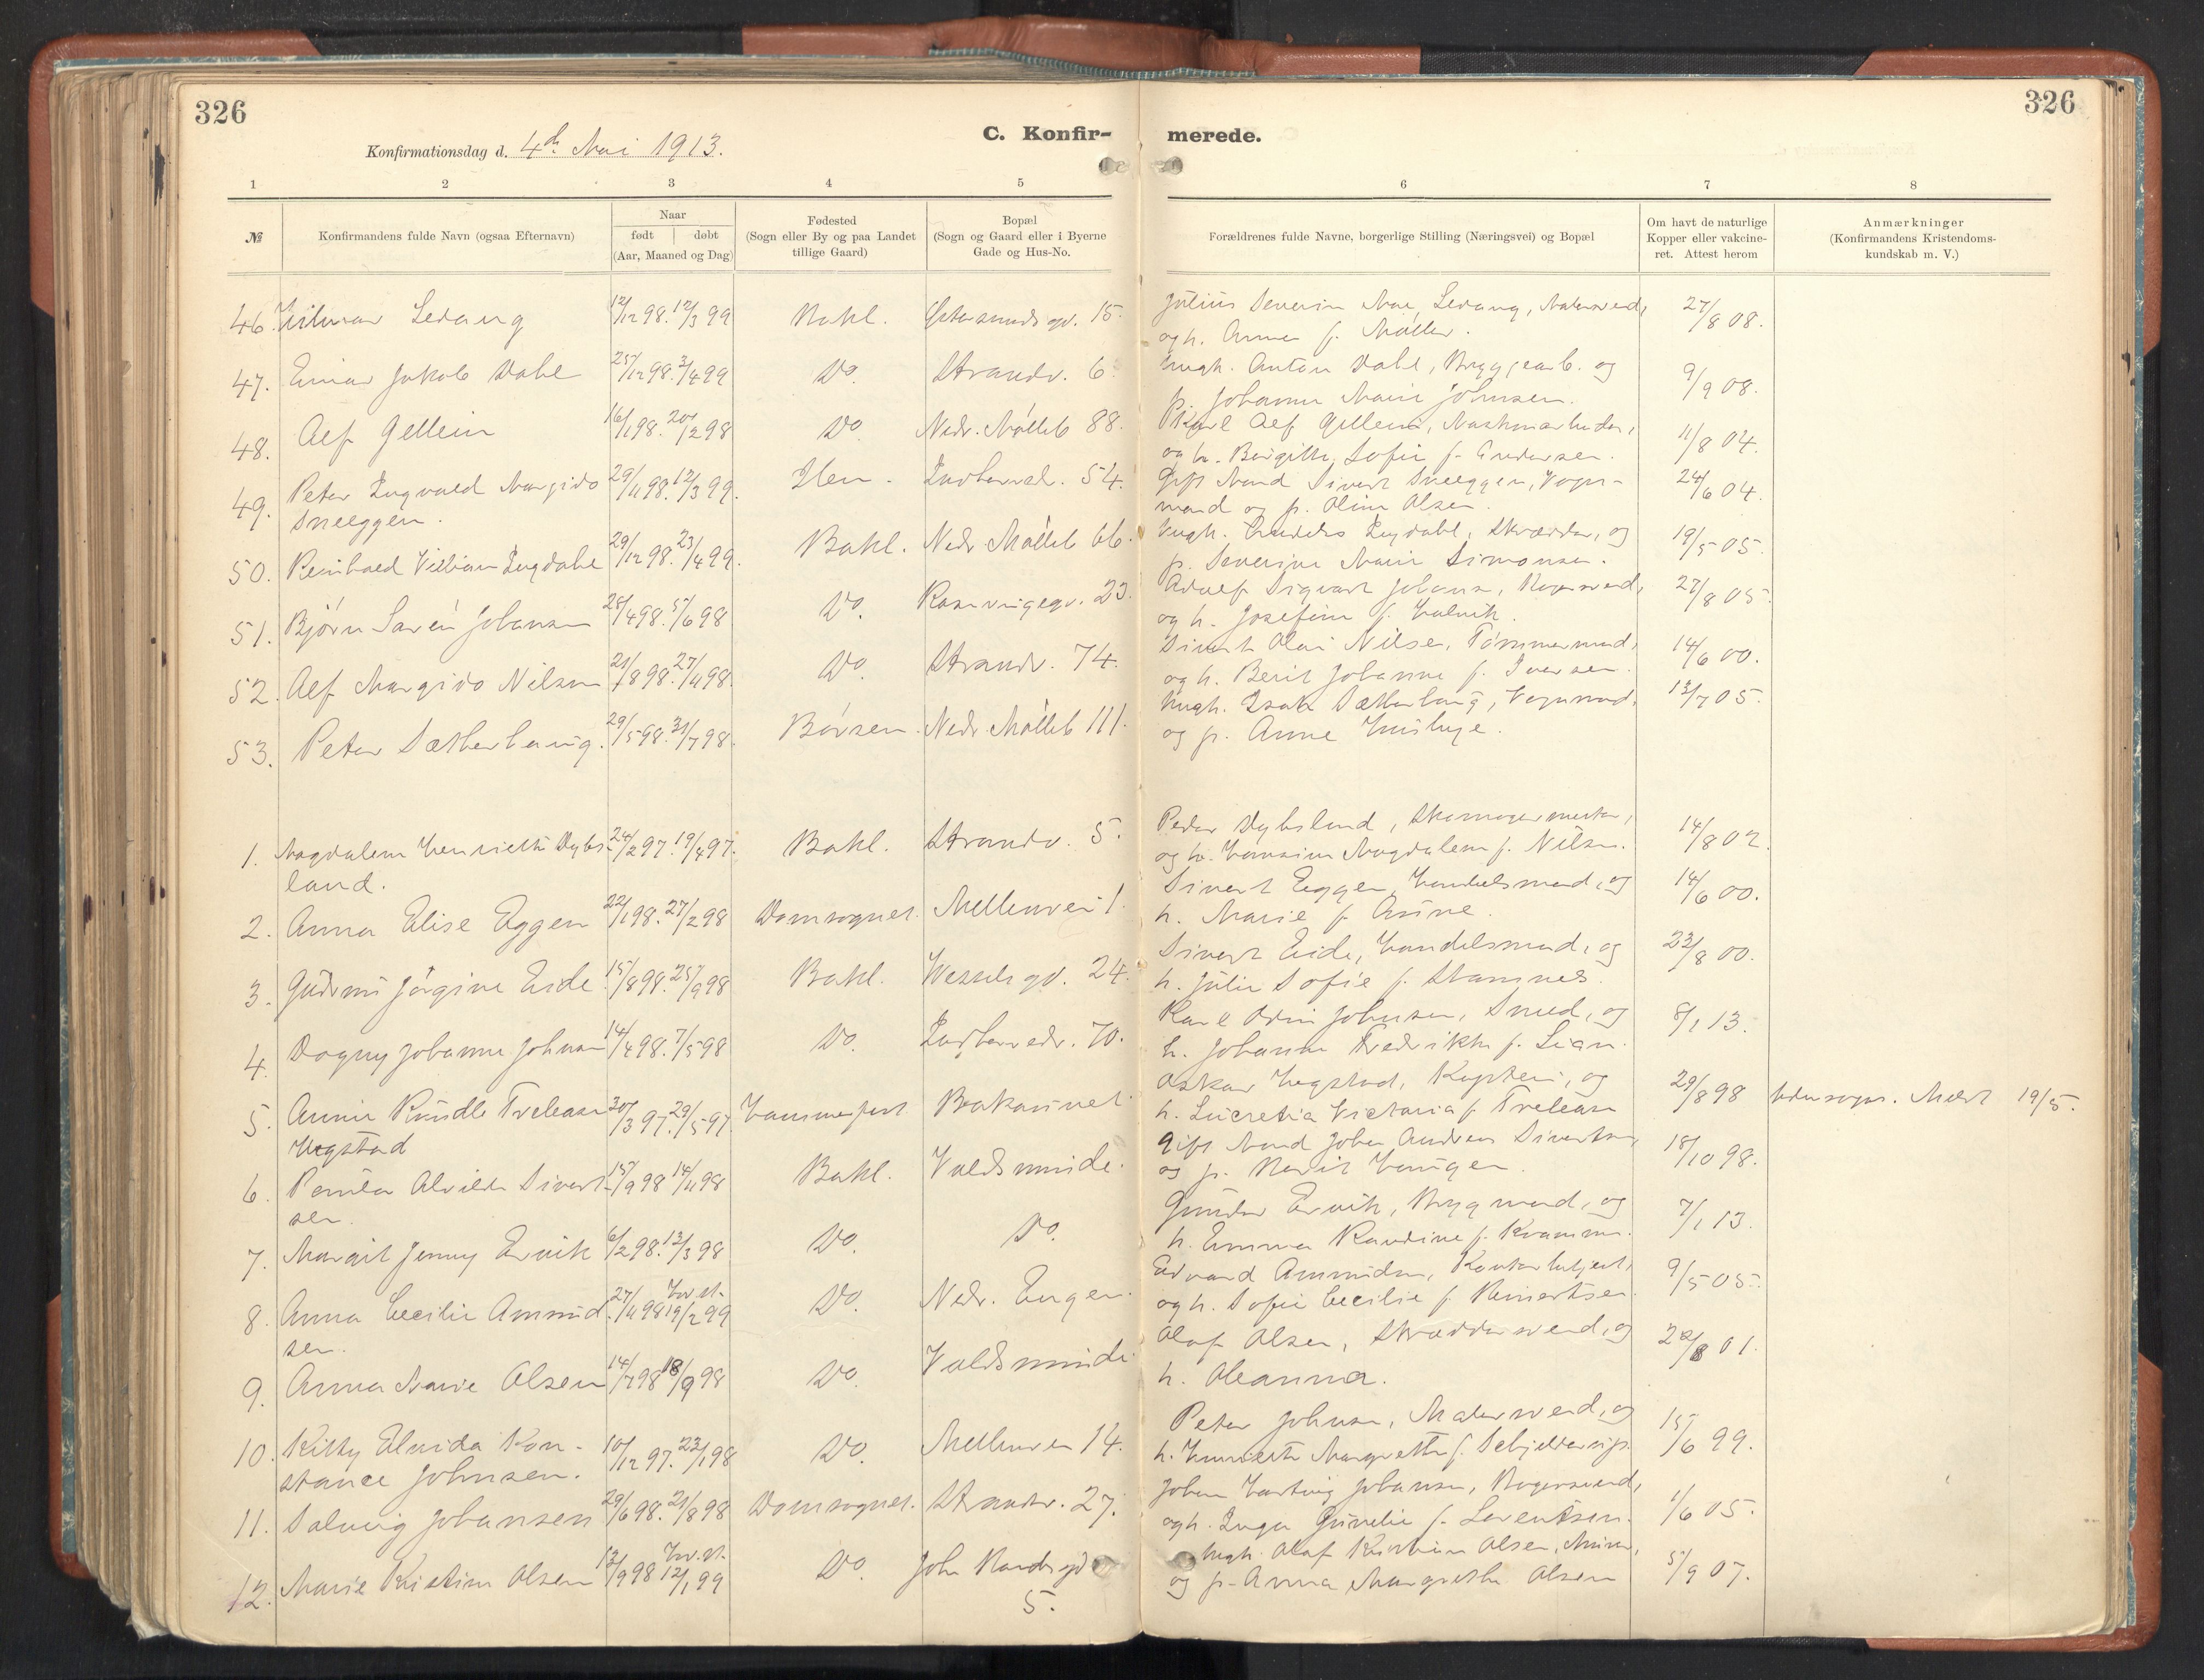 326
326
Konfirmationsdag d. 4de Mai 1913.
C. Konfir-
merede.
1 2 3 4 5 6 7 8
№
Konfirmandens fulde Navn (ogsaa Efternavn)
Naar
født døbt
(Aar, Maaned og Dag)
Fødested
(Sogn eller By og paa Landet
tillige Gaard)
Bopæl
(Sogn og Gaard eller i Byerne
Gade og Hus-No.
Forældrenes fulde Navne, borgerlige Stilling (Næringsvei) og Bopæl
Om havt de naturlige
Kopper eller vakcine-
ret. Attest herom
Anmærkninger
(Konfirmandens Kristendoms-
kundskab m. V.)
46. Hilmar Ledang 12/12 98. 12/3 99 Bakl. 15. Julius Severin Ledang, Malersvend, 27/8 08.
og h. Anna f. Møller.
47. Einar Jakob Dahl 25/12 98. 3/4 99 Do. Strandv. 6. Ungk. Anton Dahl, Bryggearb. og 9/9 08.
p. Johanna Marie Johnsen.
48. Alf Gellein 16/1 98. 20/2 98 Do. Nedr. Mølleb 88. Karl Alf Gellein, 11/8 04.
og h. Bergitte Sofie f. Andersen.
49. Peter Ingvald Margido 29/11 98. 12/3 99. Ilen. Indherredv. 54. Gift Mand Sivert Sneeggen, Vogn- 24/6 04.
Sneeggen.
mand og p. Oline Olsen.
50. Reinhold Viliam Lugdahl 29/12 98. 23/4 99. Bakl. Nedr Mølleb 66. Ungk. Lugdahl, Skrædder, og 19/5 05.
p. Severine Marie Simonsen.
51. Bjørn Søren Johansen 28/4 98. 5/6 98 Do. Rosenvingegd. 23. Adolf Sigvart Johansen, 27/8 05.
og h. Josefine f.
52. Alf Margido Nilsen 21/8 98. 27/11 98. Do. Strandv. 74. Sivert Olai Nilsen, Tømmermand, 14/6 00.
og h. Berit Johanne f. Iversen.
53. Peter Sætherhaug. 29/5 98. 31/7 98. Børsen. Nedr Mølleb 111. Ungk. Isak Sætherhaug, Vognmand, 13/7 05.
og p. Anne
1. Magdalene Henriette Dybs- 24/2 97. 19/4 97. Bakl. Strandv. 5. Peder Dybsland, Skomagermester, 14/8 02.
land.
og h. Hansine Magdalene f. Nilsen.
2. Anna Elise Eggen 22/1 98. 27/2 98 Domsognet. Mellemvei 1. Sivert Eggen, Handelsmand, og 14/6 00.
h. Marie f. Aune.
3. Gudrun Jørgine Eide. 15/8 98. 25/9 98 Bakl. Wesselsgd. 24. Sivert Eide, Handelsmand, og 23/8 00.
h. Julie Sofie f. Stamnes.
4. Dagny Johanne Johnsen 14/4 98. 7/5 98 Do. Indherredv. 70. Karl Odin Johnsen, Smed, og 8/1 13.
h. Johanna Fredrikke f. Lian.
5. Annie Rundle Trelease 30/3 97. 29/5 97. Hammerfest Bakaunet. Oskar Hegstad, Kaptein, og 29/8 98 Udensogns. Meldt 19/5.
Hegstad
h. Lucretia Victoria f. Trelease
6. Alvilde Sivert- 15/9 98 14/11 98 Bakl. Voldsminde. Gift Mand Johan Andreas Sivertsen, 18/10 98.
sen.
og p. Marit Haugen.
7. Margit Jenny Ervik 6/2 98. 13/3 98 Do. Do. Gunder Ervik, Brygmand, og 7/1 13.
h. Emma Randine f.
8. Anna Cecilie Ammund- 27/11 98 19/2 99 Do. Nedr. Engen. Edvard Ammundsen, Kontorbetjent, 9/5 05.
sen.
og h. Sofie Cecilie f. Reinertsen.
9. Anna Marie Olsen 14/7 98 18/9 98 Do. Voldsminde. Olaf Olsen, Skræddersvend, og 8 01.
h. Oleanna.
10. Kitty Elvida Kon- 10/12 97. 23/1 98 Do. Mellemvei 14. Peter Johnsen, Malersvend, og 15/6 99.
stance Johnsen.
h. Henriette Margrethe f. Schjelderup.
11. Solveig Johansen 29/6 98. 21/8 98 Domsognet. Strandv. 27. Johan Hartvig Johansen, Bagersvend, 1/6 05.
og h. Inga Gunelie f. Lorentsen.
12. Marie Kristine Olsen 13/9 98 12/1 99 Do. John Ungk. Olaf Olsen, Murer, 5/9 07.
5.
og p. Anna Margrethe Olsen